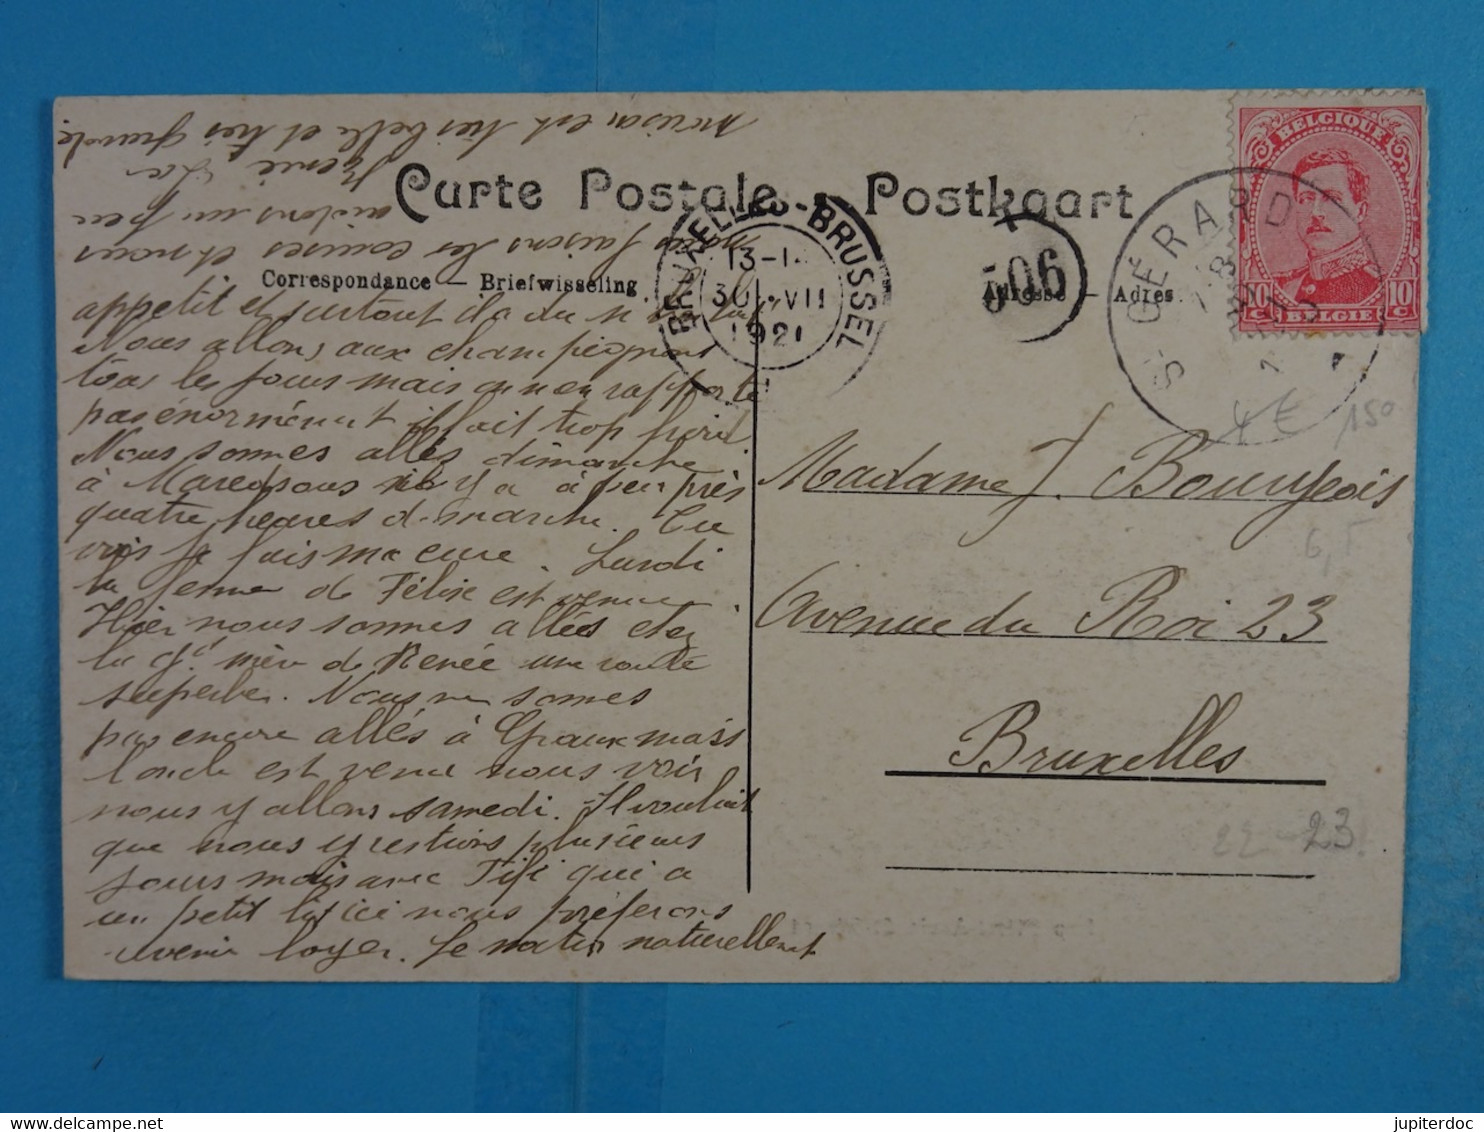 Carte Postale - Postkaart
Correspondance — Briefwisseling
Adresse — Adres
BELGIQUE
10c 10c
BELGIE
BRUXELLES-BRUSSEL
30 VII
1921
506
St GÉRARD
18
4 €
150
6,5
22-23
Madame J. Bourgeois
Avenue du Roi 23
Bruxelles
appetit et surtout
Nous allons aux champignons
tous les jours mais on en rapporte
pas énormément il fait trop froid.
Nous sommes allés dimanche
à Maredsous il y a à peu près
quatre heures de marche. Tu
vois je fais ma cure. Lundi
la femme de Félix est venue.
Hier nous sommes allées chez
la gd mère de Renée une route
superbe. Nous ne sommes
pas encore allés à Graux mais
l'oncle est venu nous voir
nous y allons samedi. Il voulait
que nous y restions plusieurs
jours mais avec Fifi qui a
un petit lit ici nous préférons
revenir loger. Le matin naturellement
nous faisons les courses et nous
aidons un peu
Renée. La
maison est très belle et très grande
jupiterdoc